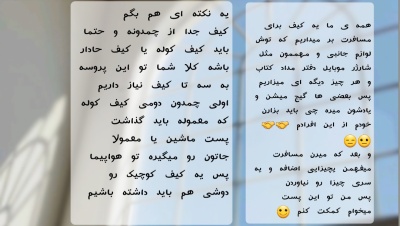 همه ی ما یه کیف برای
مسافرت بر میداریم که توش
لوازم جانبی و مهممون مثل
شارژر موبایل دفتر مداد کتاب
و هر چیز دیگه ای میزاریم
پس بعضی ها گیج میشن و
یادشون میره چی باید بزارن
خودم از این افرادم 🤝🤝
😑😐
و بعد که میرن مسافرت
میفهمن یچیزایی اضافه و یه
سری چیزا رو نیاوردن
پس من تو این پست
میخوام کمکت کنم 🙂
یه نکته ای هم بگم
کیف جدا از چمدونه و حتما
باید کیف کوله یا کیف حادار
باشه کلا شما تو این پروسه
به سه تا کیف نیاز داریم
اولی چمدون دومی کیف کوله
که معموله باید گذاشت
پست ماشین یا معمولا
جاتون رو میگیره تو هواپیما
پس یه کیف کوچیک رو
دوشی هم باید داشته باشیم